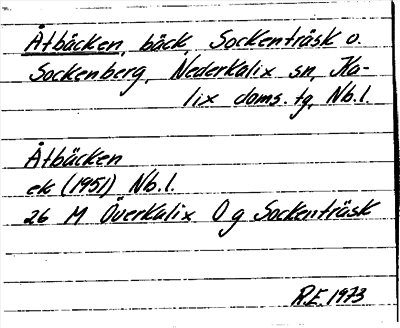 Åtbäcken, bäck, Sockenträsk o.
Sockenberg, Nederkalix sn, Ka-
lix doms. tg, Nb.l.
Åtbäcken
ek (1951) Nb.l.
26 M Överkalix O g Sockenträsk
R.E. 1973